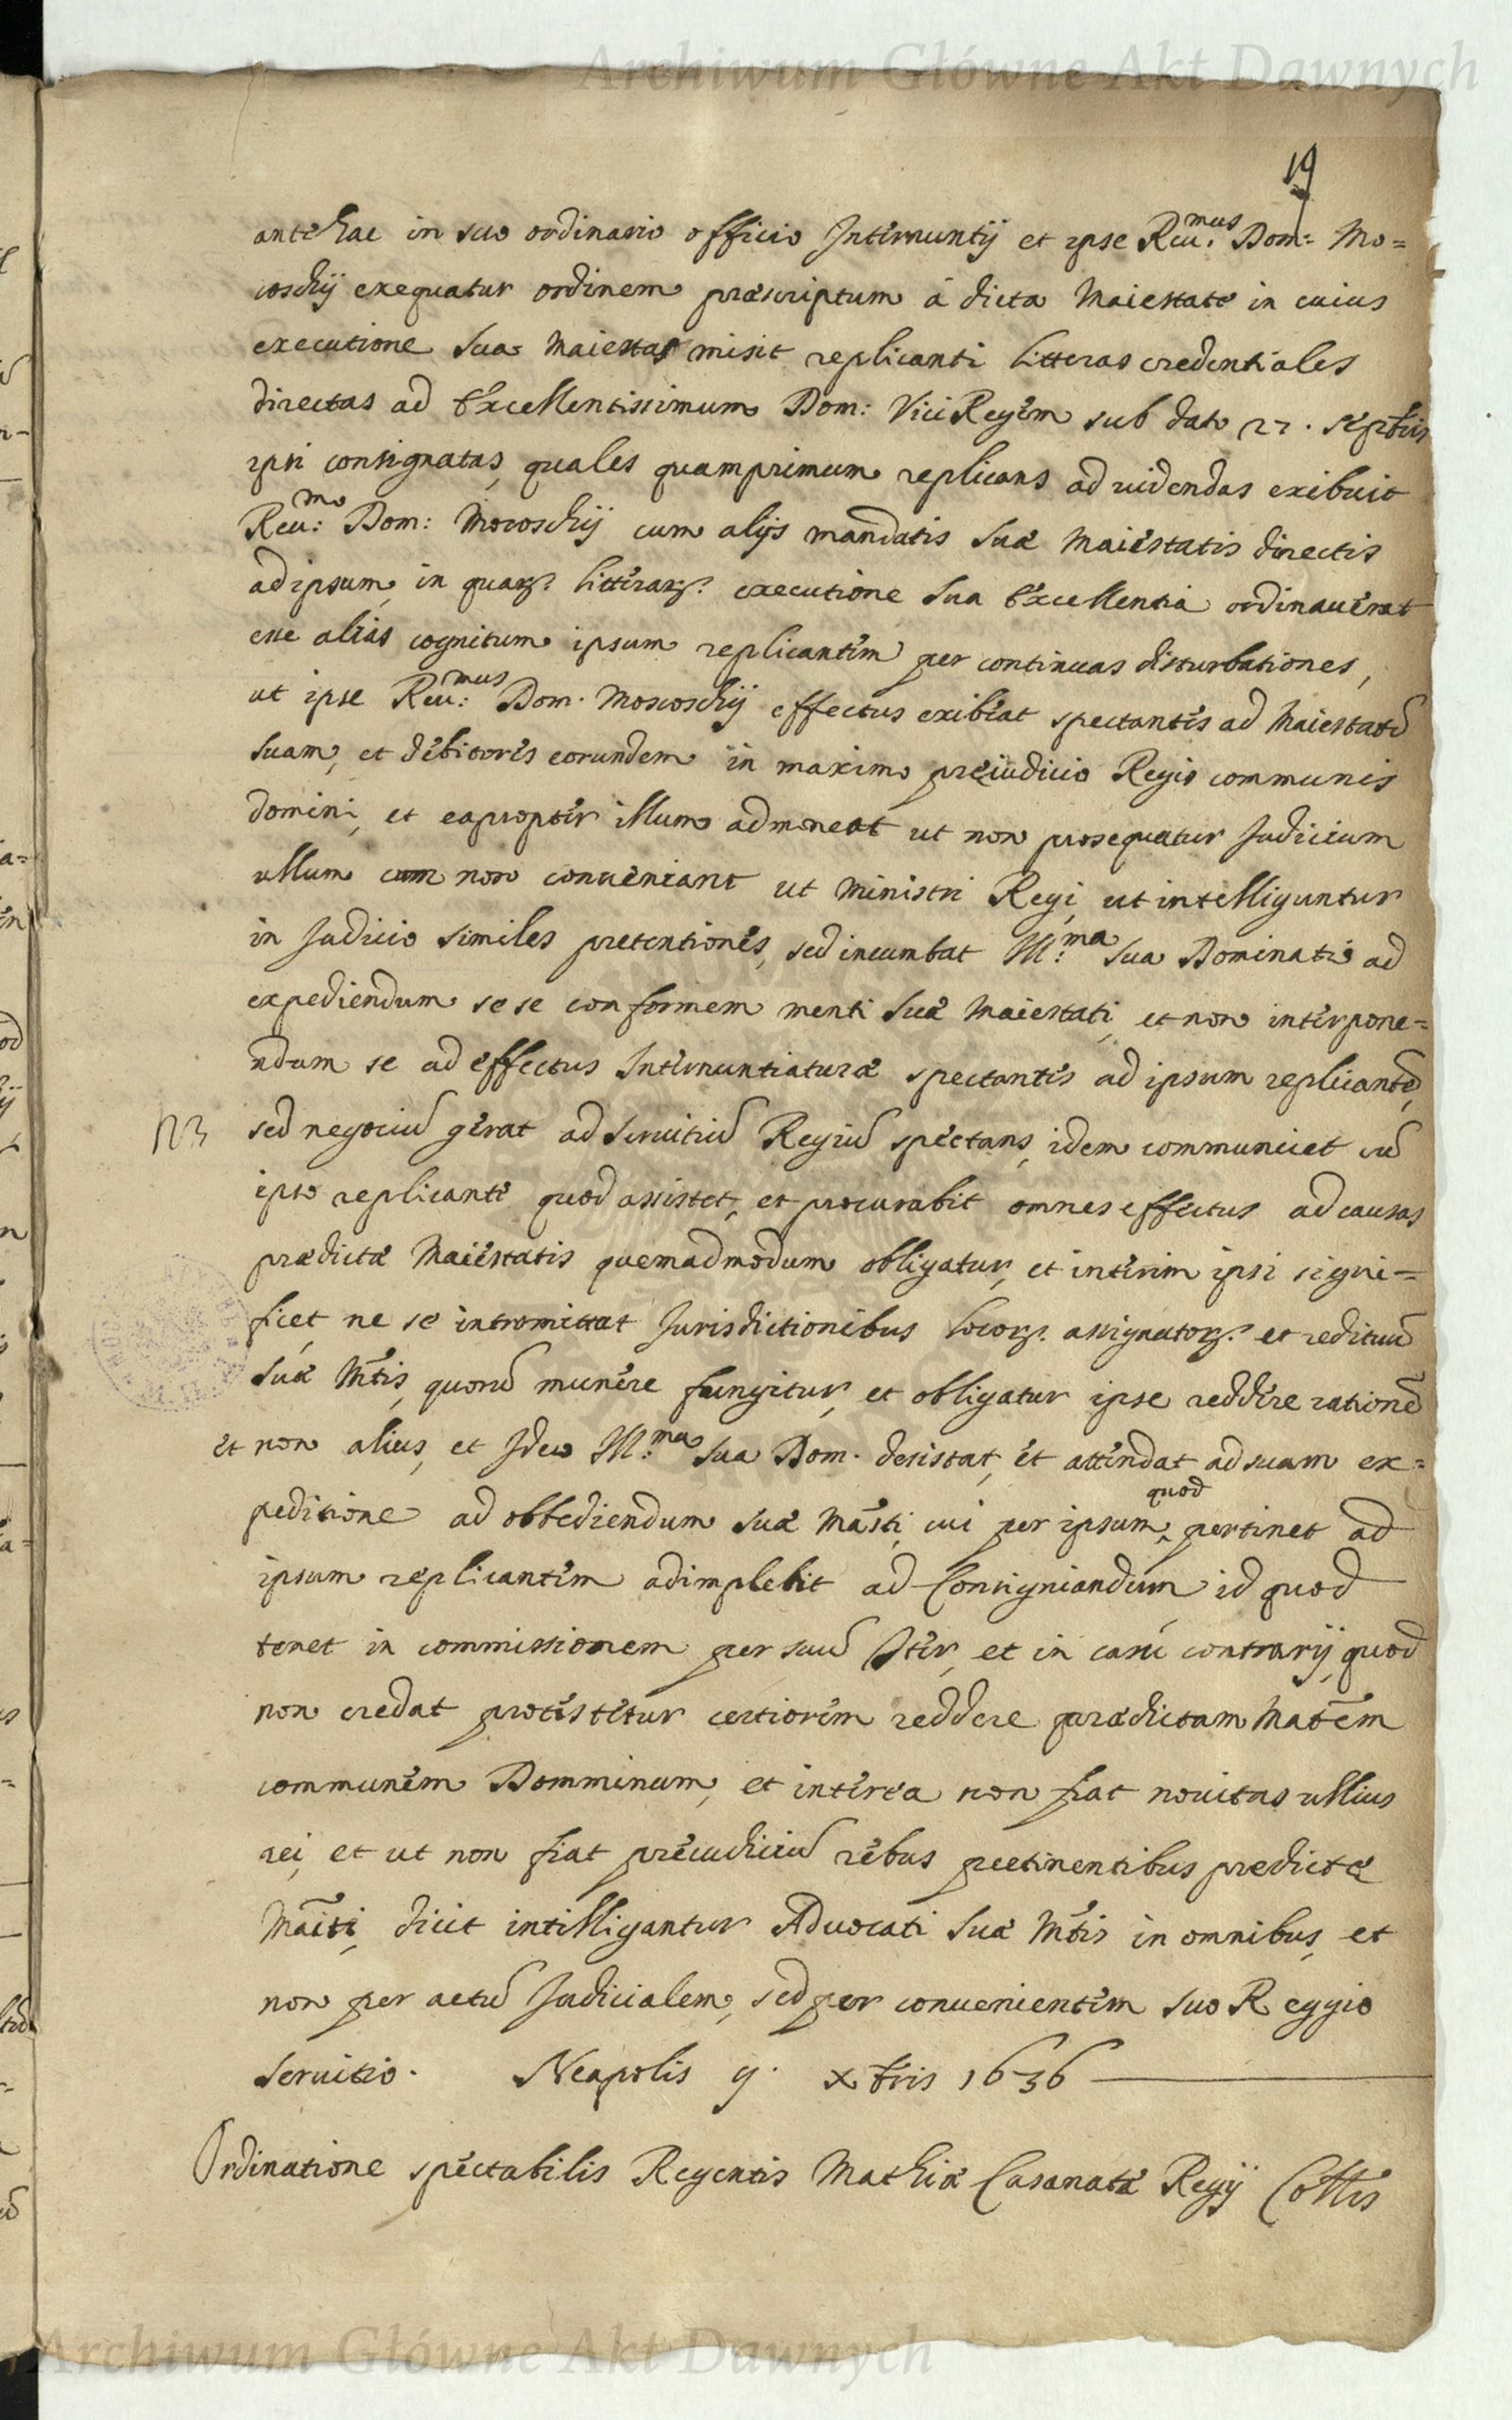 Archiwum Główne Akt Dawnych
19
antehac in suo ordinario officio Internuntij et ipse Reu:mus Dom: Mo=
coschij exequatur ordinem præscriptum à dicta Maiestate in cuius
executione sua Maiestas misit replicanti litteras credentiales
directas ad Excellentissimum Dom: ViceRegem sub dato 27. septbris
ipsi consignatas, quales quamprimum replicans ad videndas exibuit
Reu:mo Dom: Mocoschij cum alijs mandatis suæ Maiestatis directis
ad ipsum, in quarz. litterarz. executione sua Excellentia ordinauerat
esse alias cognitum ipsum replicantem per continuas disturbationes,
ut ipse Reu:mus Dom. Moscoschij effectus exibeat spectantes ad Maiestatē
suam, et debitores eorundem in maximo preiudicio Regis communis
domini, et eapropter illum admoneat ut non prosequatur Judicium
ullum cum non conueniant ut Ministri Regi, ut intelliguntur
in Judicio similes pretentiones, sed incumbat Ill:ma sua Dominatio ad
expediendum se se conformem menti suæ Maiestati, et non interpone=
ndum se ad effectus Internuntiaturæ spectantes ad ipsum replicantē,
NB sed negociū gerat ad seruitiū Regiū spectans, idem communicet cū
ipso replicante quod assistet, et procurabit omnes effectus ad causas
prædictæ Maiestatis quemadmodum obligatur, et interim ipsi signi=
ficet, ne se intromittat Jurisdictionibus locorz. assignatorz. et redituū
suæ Mtis, quorū munere fungitur, et obligatur ipse reddere rationē
et non alius, et Ideo Ill:ma sua Dom. desistat, et attendat ad suam ex=
peditione ad obbediendum suæ Maesti, cui per ipsum, quod pertinet ad
ipsum replicantem adimplebit ad Consigniandum id quod
tenet in commissionem per suū Iter, et in casu contrarij, quod
non credat protestetur certiorem reddere prædictam Matem
communem Domminum, et interea non fiat nouitas ullius
rei, et ut non fiat preiudiciū rebus pertinentibus predictæ
Maiti, dicit intelligantur Aduocati suæ Mtis in omnibus, et
non per actū Judicialem, sed per conuenientem suo Reggio
seruitio. Neapolis 9. xbris 1636
Ordinatione spectabilis Regentis Mathiæ Casanatæ Regij Collis
Archiwum Główne Akt Dawnych